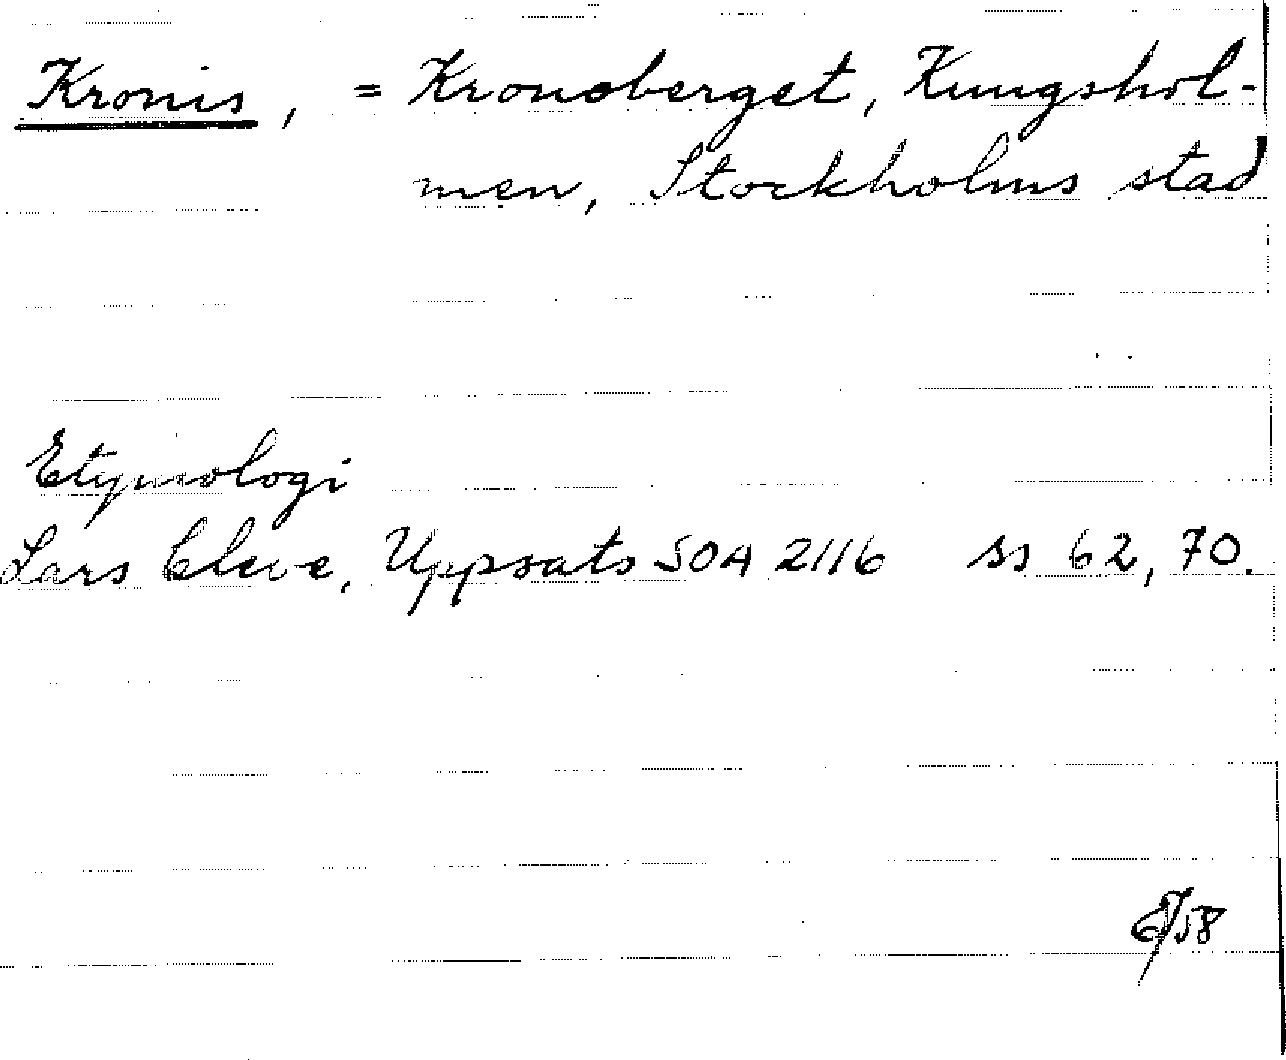 Kronis, = Kronoberget, Kungshol-
men, Stockholms stad
Etymologi
Lars Cleve, Uppsats SOA 2116 ss 62, 70.
/58